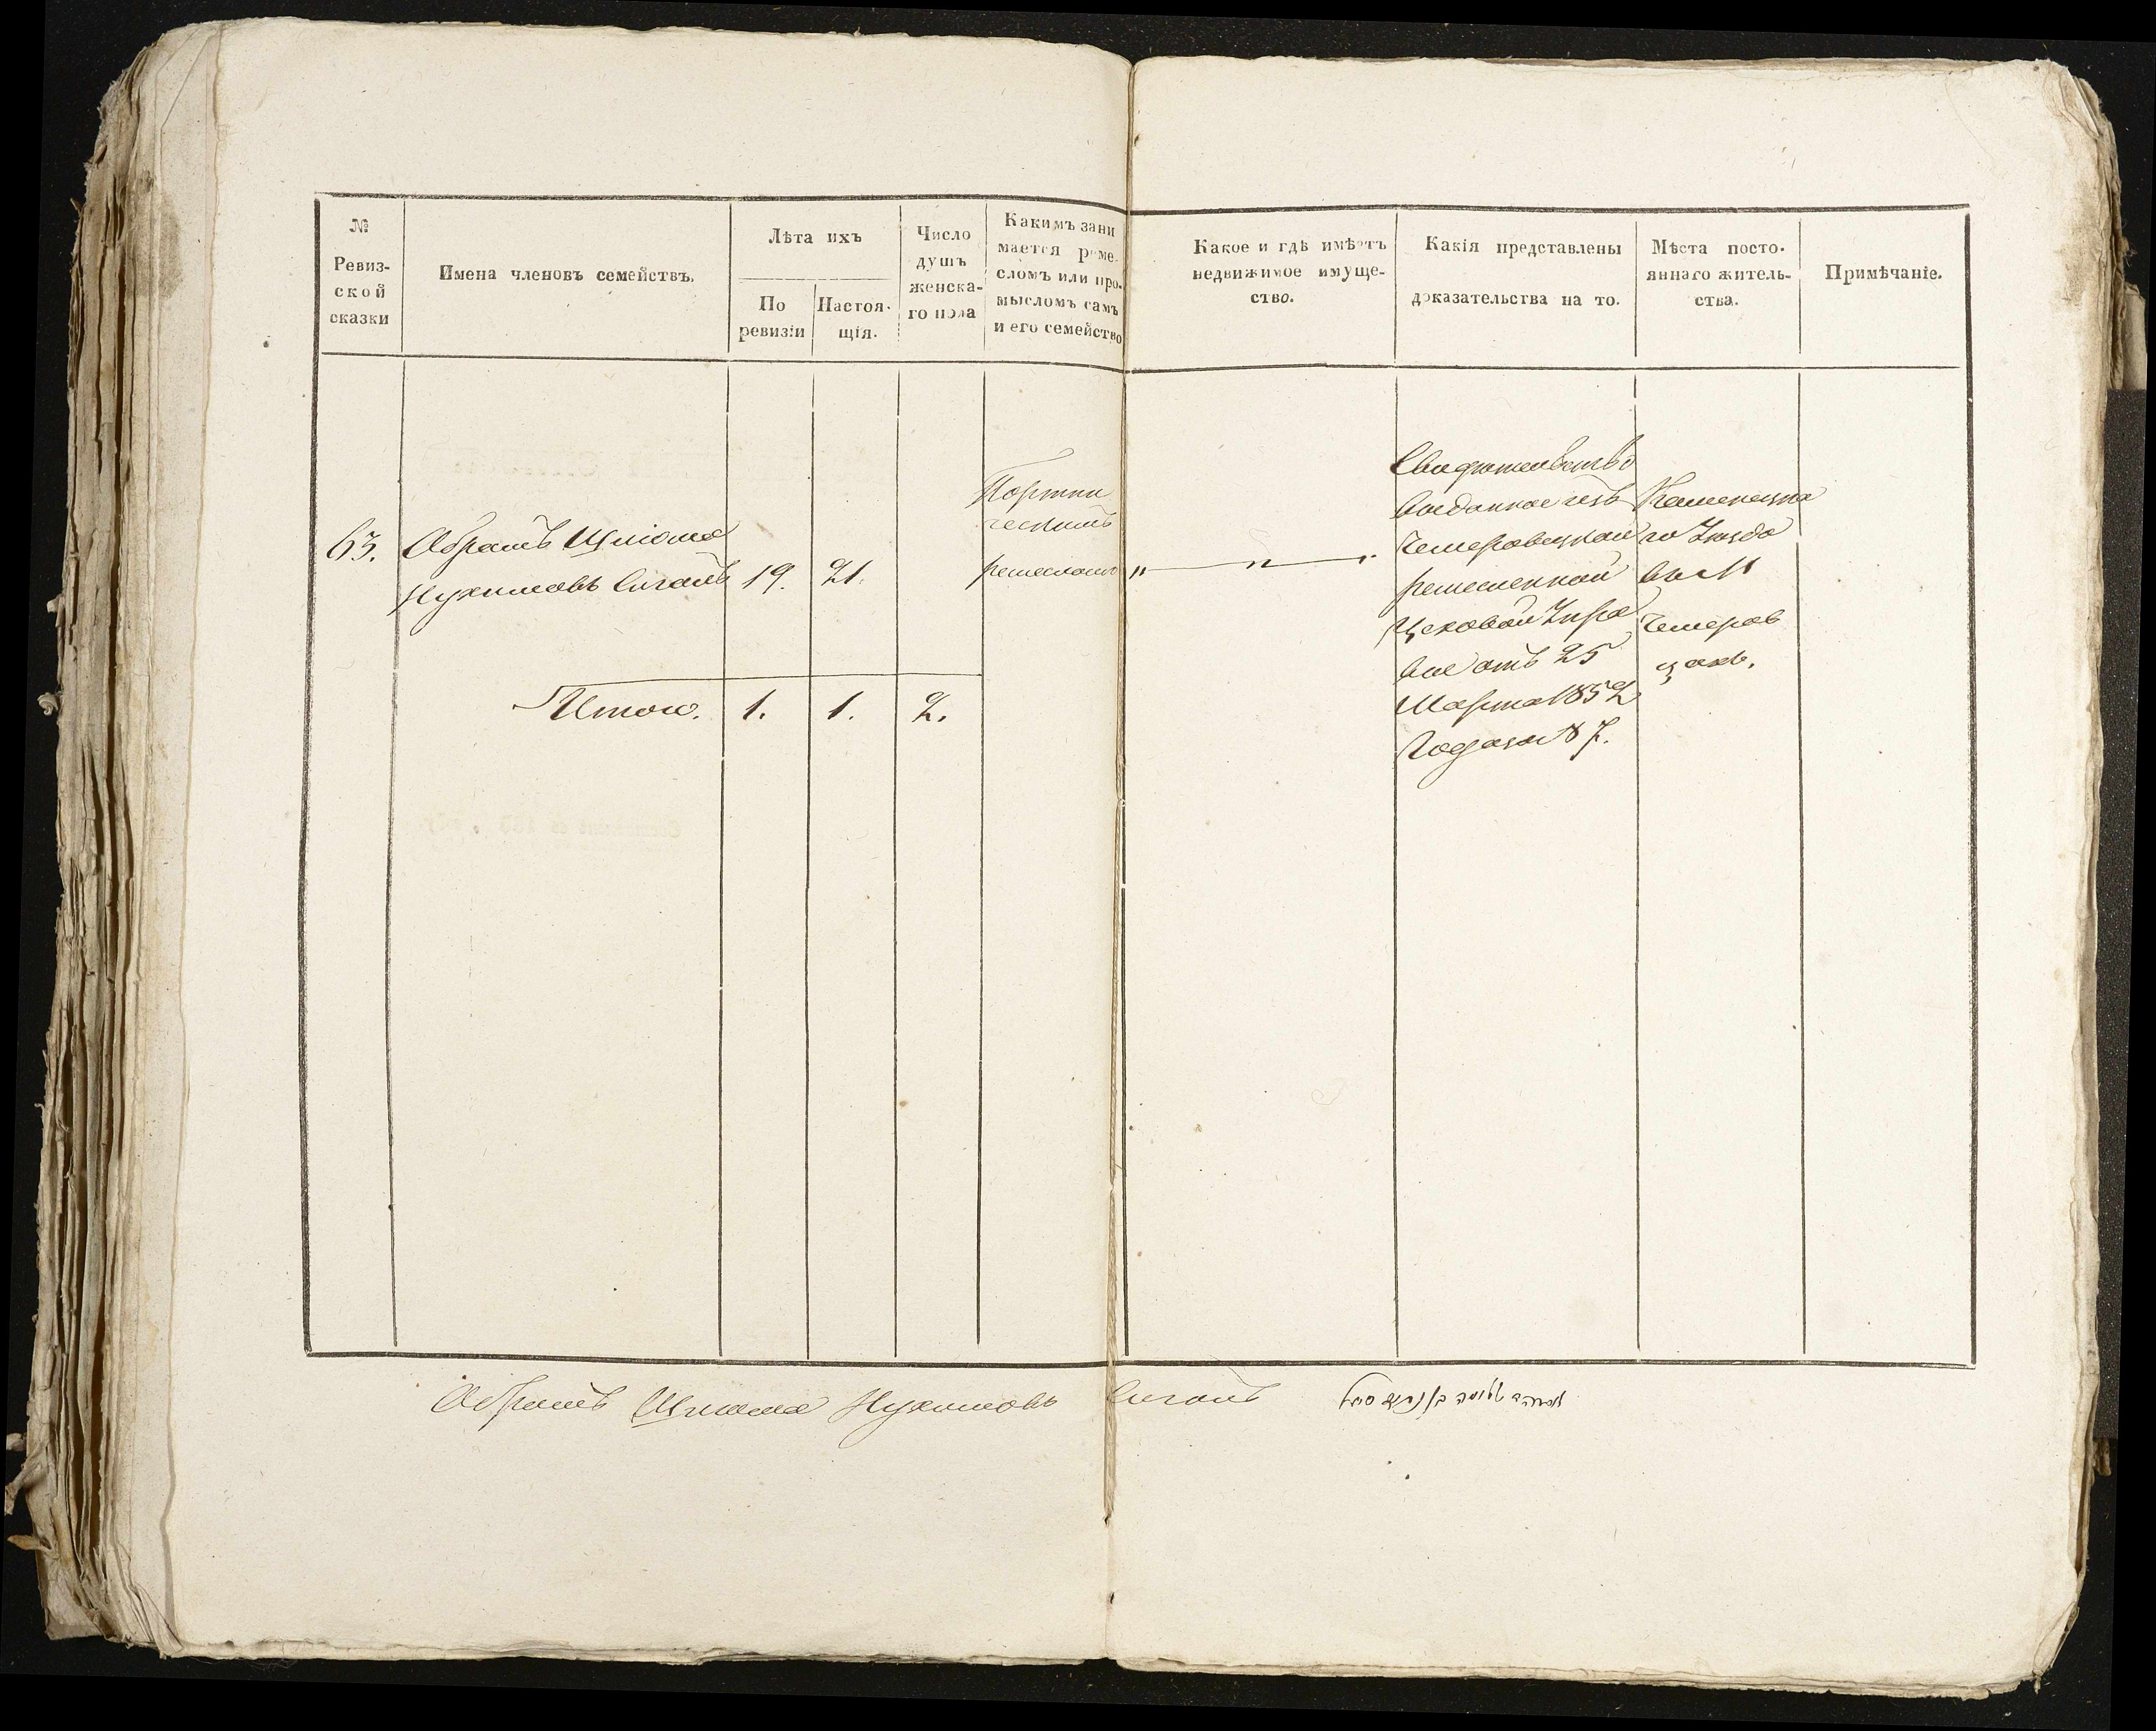 №
Ревиз-
ской
сказки
Имена членовъ семействъ.
Лѣта ихъ
По
ревизіи
Настоя-
щія.
Число
душъ
женска-
го пола
Какимъ зани
мается реме-
сломъ или про-
мысломъ самъ
и его семейство
Какое и гдѣ имѣетъ
недвижимое имуще-
ство.
Какія представлены
доказательства на то.
Мѣста посто-
яннаго житель-
ства.
Примѣчаніе.
63.
Абрамъ Шліома
Нухимовъ Сигалъ
19.
21.
Портни
ческимъ
ремесломъ
" — " —
Свидѣтельство
выданное изъ
Чемеровецкой
ремесленной
Цеховой Упра
вы отъ 25
Марта 1852
Года за № 7.
Каменецка
го Уѣзда
въ М
Чемеров
цахъ.
Итого.
1.
1.
2.
Абрамъ Шліома Нухимовъ Сигалъ